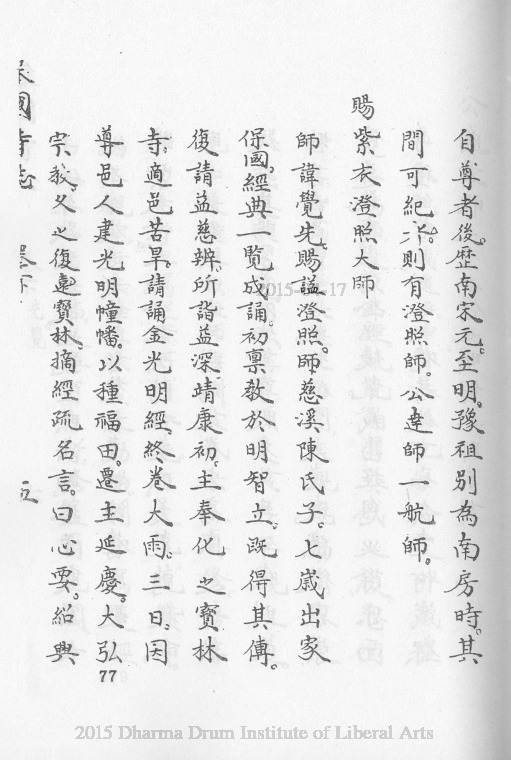 自尊者後。歷南宋元。至明。豫祖別為南房時。其
間可紀。則有澄照師。公達師一航師。
賜紫衣澄照大師
師諱覺先。賜謚澄照。師慈溪陳氏子。七歲出家
保國。經典一覽成誦。初稟教於明智立。既得其傳。
復請益慈辨。所詣益深靖康初。主奉化之寶林
寺。適邑苦旱。請誦金光明經。終卷大雨。三日。因
尊邑人建光明幢幡。以種福田。遷主延慶。大弘
宗教。久之復還寶林。摘經疏名言。曰心要。紹興
保國寺志 卷下 五
77
2015-03-17
2015 Dharma Drum Institute of Liberal Arts